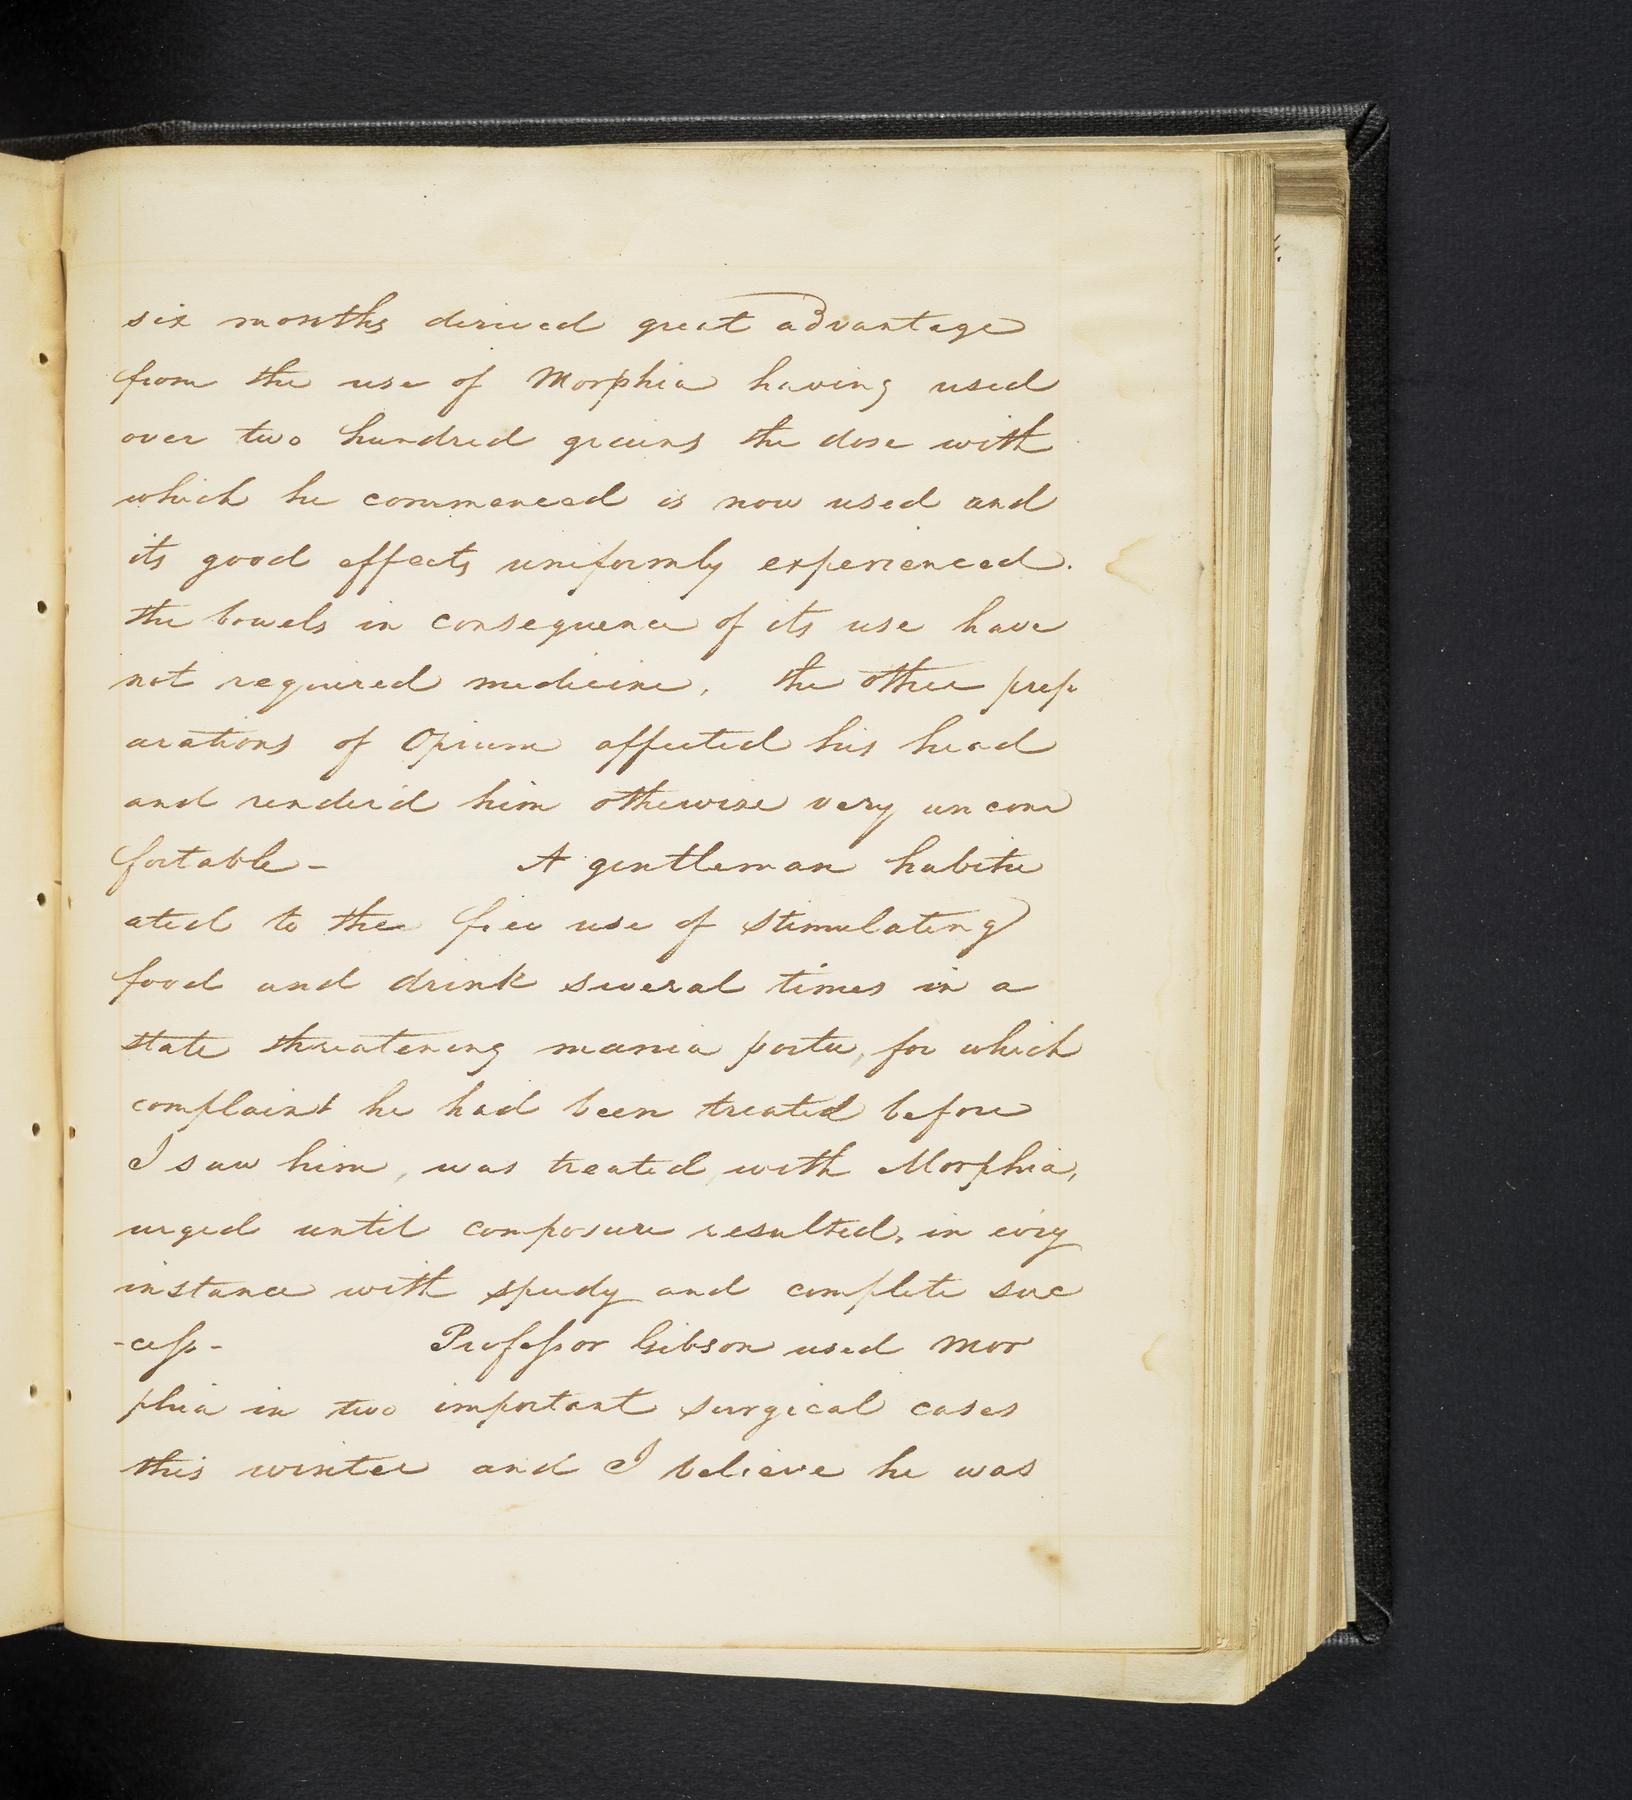 six months derived great advantage
from the use of Morphia having used
over two hundred grains the dose with
which he commenced is now used and
its good effects uniformly experienced.
the bowels in consequence of its use have
not required medicine. the other prep
arations of Opium affected his head
and renderd him otherwise very uncom
fortable - A gentleman habitu
ated to the free use of stimulating
food and drink several times in a
state threatening mania portu, for which
complaint he had been treated before
I saw him, was treated with Morphia,
urged until composure resulted, in evry
instance with speedy and complete suc
-cess- Professor Gibson used Mor
phia in two important surgical cases
this winter and I believe he was